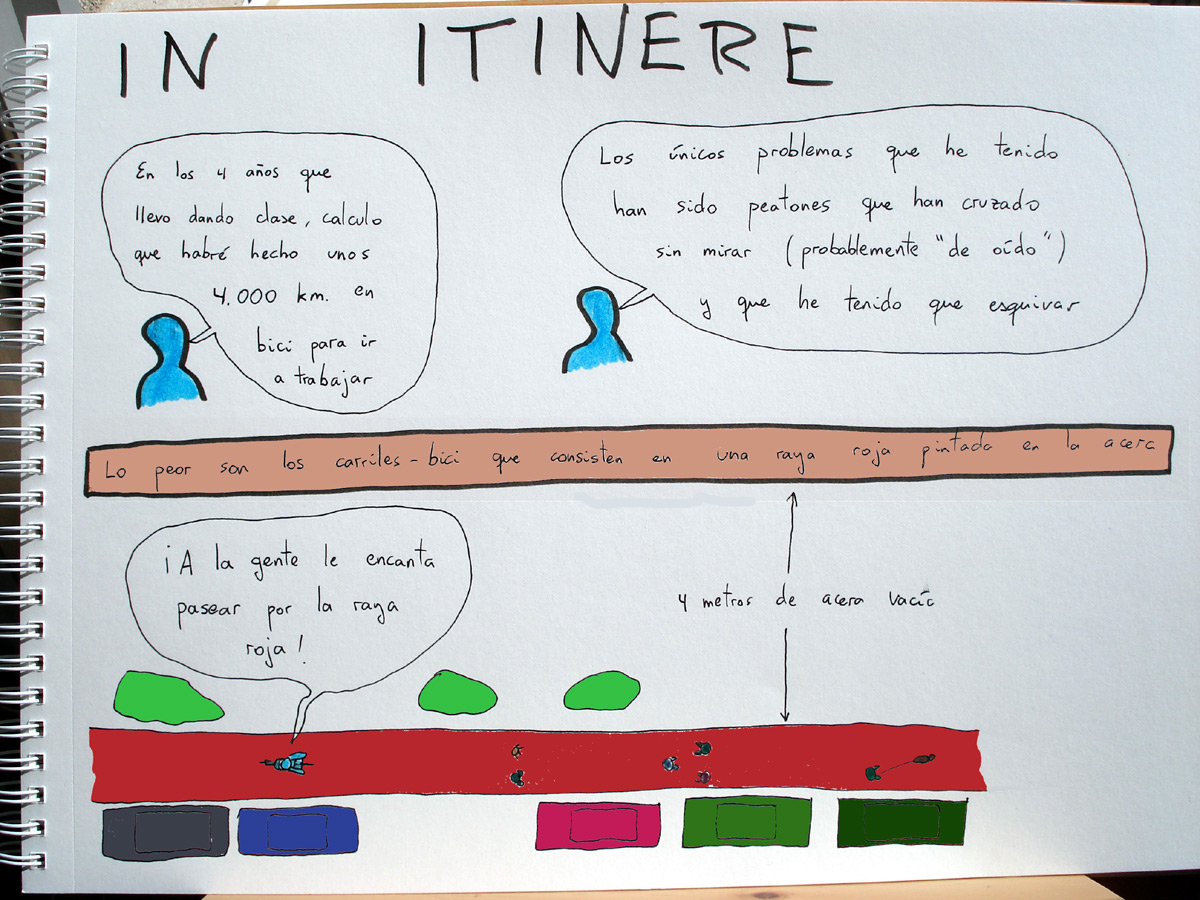 IN ITINERE
En los 4 años que
llevo dando clase, calculo
que habré hecho unos
4.000 km. en
bici para ir
a trabajar
Los únicos problemas que he tenido
han sido peatones que han cruzado
sin mirar (probablemente "de oído")
y que he tenido que esquivar
Lo peor son los carriles-bici que consisten en una raya roja pintada en la acera
¡A la gente le encanta
pasear por la raya
roja!
4 metros de acera vacía